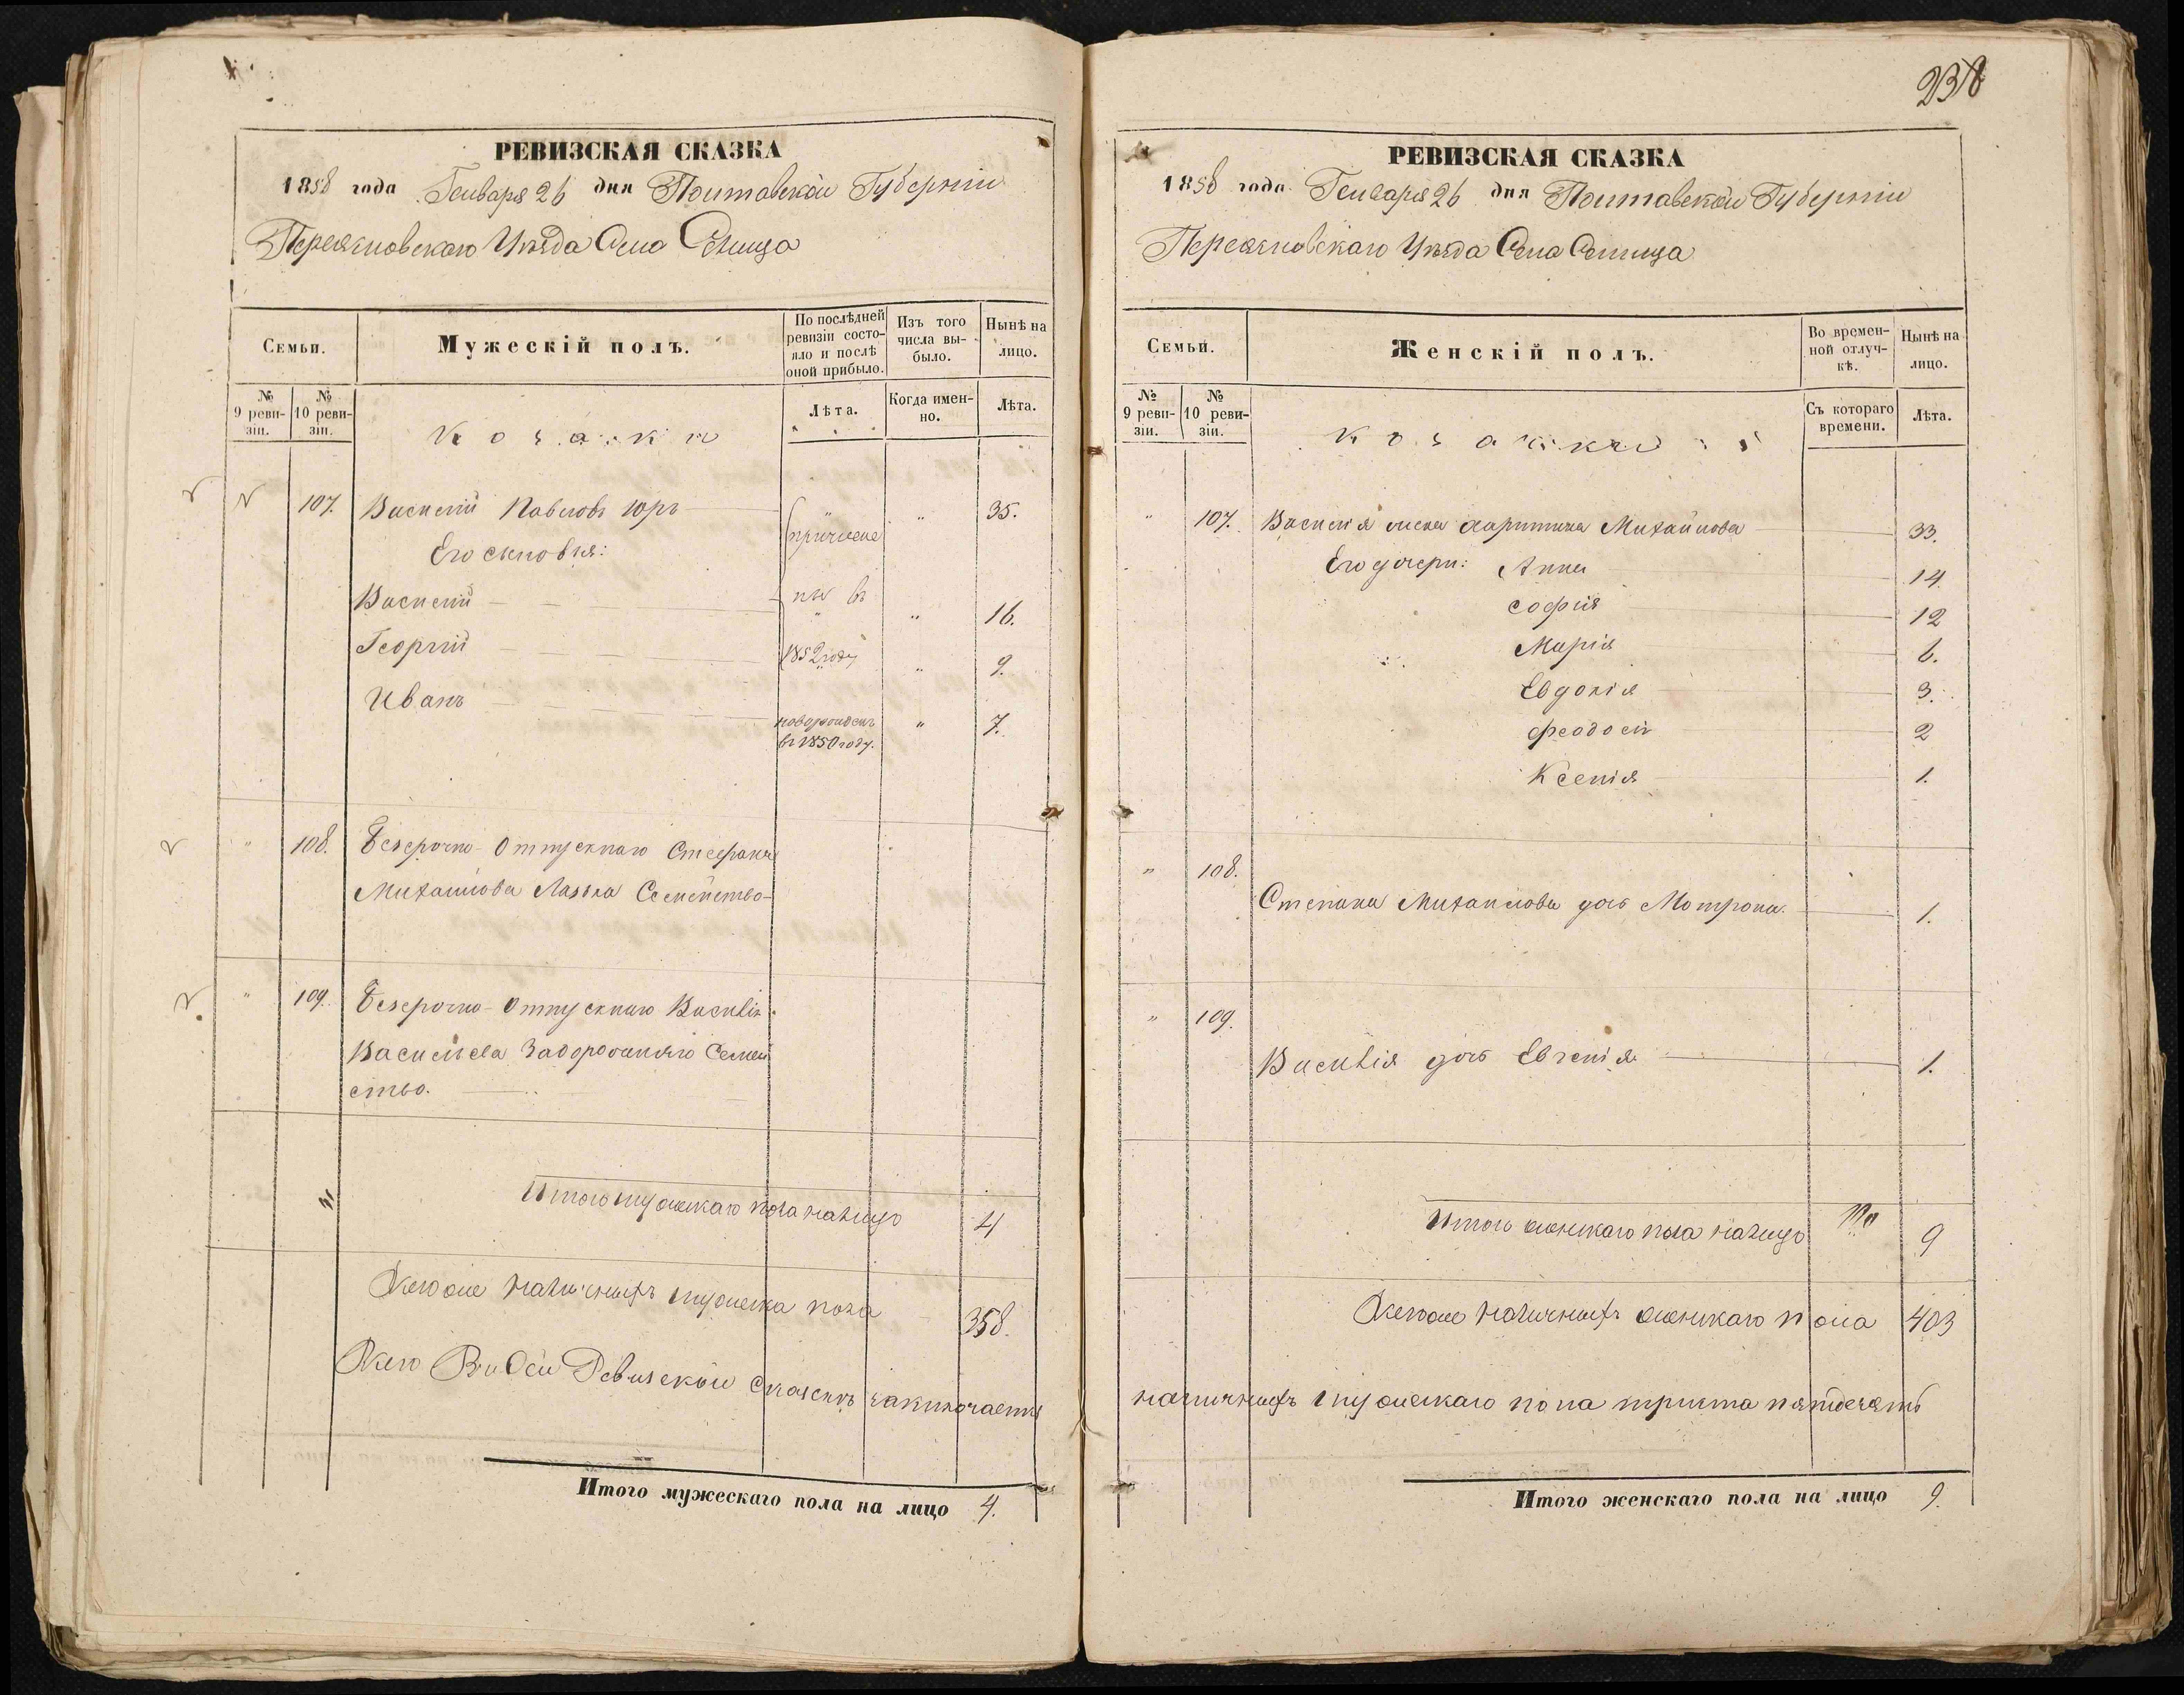 РЕВИЗСКАЯ СКАЗКА
1858 года Генваря 26 дня Полтавской Губернии
Переяславскаго Уѣзда Села Сѣнища
Семьи.
Мужескій полъ.
По послѣдней ревизіи состояло и послѣ оной прибыло.
Изъ того числа выбыло.
Нынѣ на лицо.
№ 9 ревизіи.
№ 10 ревизіи.
Козаки
Лѣта.
Когда именно.
Лѣта.
107. Василий Павловъ Юръ " " 35.
Его сыновья: причисле
Василий ны въ " " 16.
Георгий 1852 году " 9.
Иванъ новорожденъ въ 1850 году. " 7.
" 108. Безсрочно-Отпускнаго Стефана
Михайлова Лазька Семейство
" 109. Безсрочно-Отпускнаго Василія
Васильева Задорожняго Семей
ство.
Итого мужескаго пола налицо 4
Всего же наличныхъ мужеска пола 358.
Всего Въ Сей Ревизской Сказскѣ заключается
Итого мужескаго пола на лицо 4.
238
РЕВИЗСКАЯ СКАЗКА
1858 года Генваря 26 дня Полтавской Губернии
Переяславскаго Уѣзда Села Сенища
Семьи.
Женскій полъ.
Во временной отлучкѣ.
Нынѣ на лицо.
№ 9 ревизіи.
№ 10 ревизіи.
Козачки
Съ котораго времени.
Лѣта.
" 107. Василія жена Харитина Михайлова 33.
Его дочери: Анна 14
София 12
Мария 6.
Евдокія 3.
Феодосія 2
Ксенія 1.
" 108.
Степана Михайлова дочь Мотрона. 1.
" 109.
Василія дочь Евгенія 1.
Итого женскаго пола налицо 9
Всего же наличныхъ женскаго пола 403
наличныхъ мужескаго пола триста пятдесятъ
Итого женскаго пола на лицо 9.